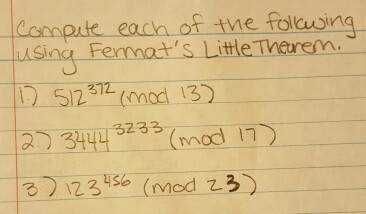 Compute each of the following
using Fermat's Little Theorem.
1.) 512³⁷² (mod 13)
2.) 3444³²³³ (mod 17)
3.) 123⁴⁵⁶ (mod 23)